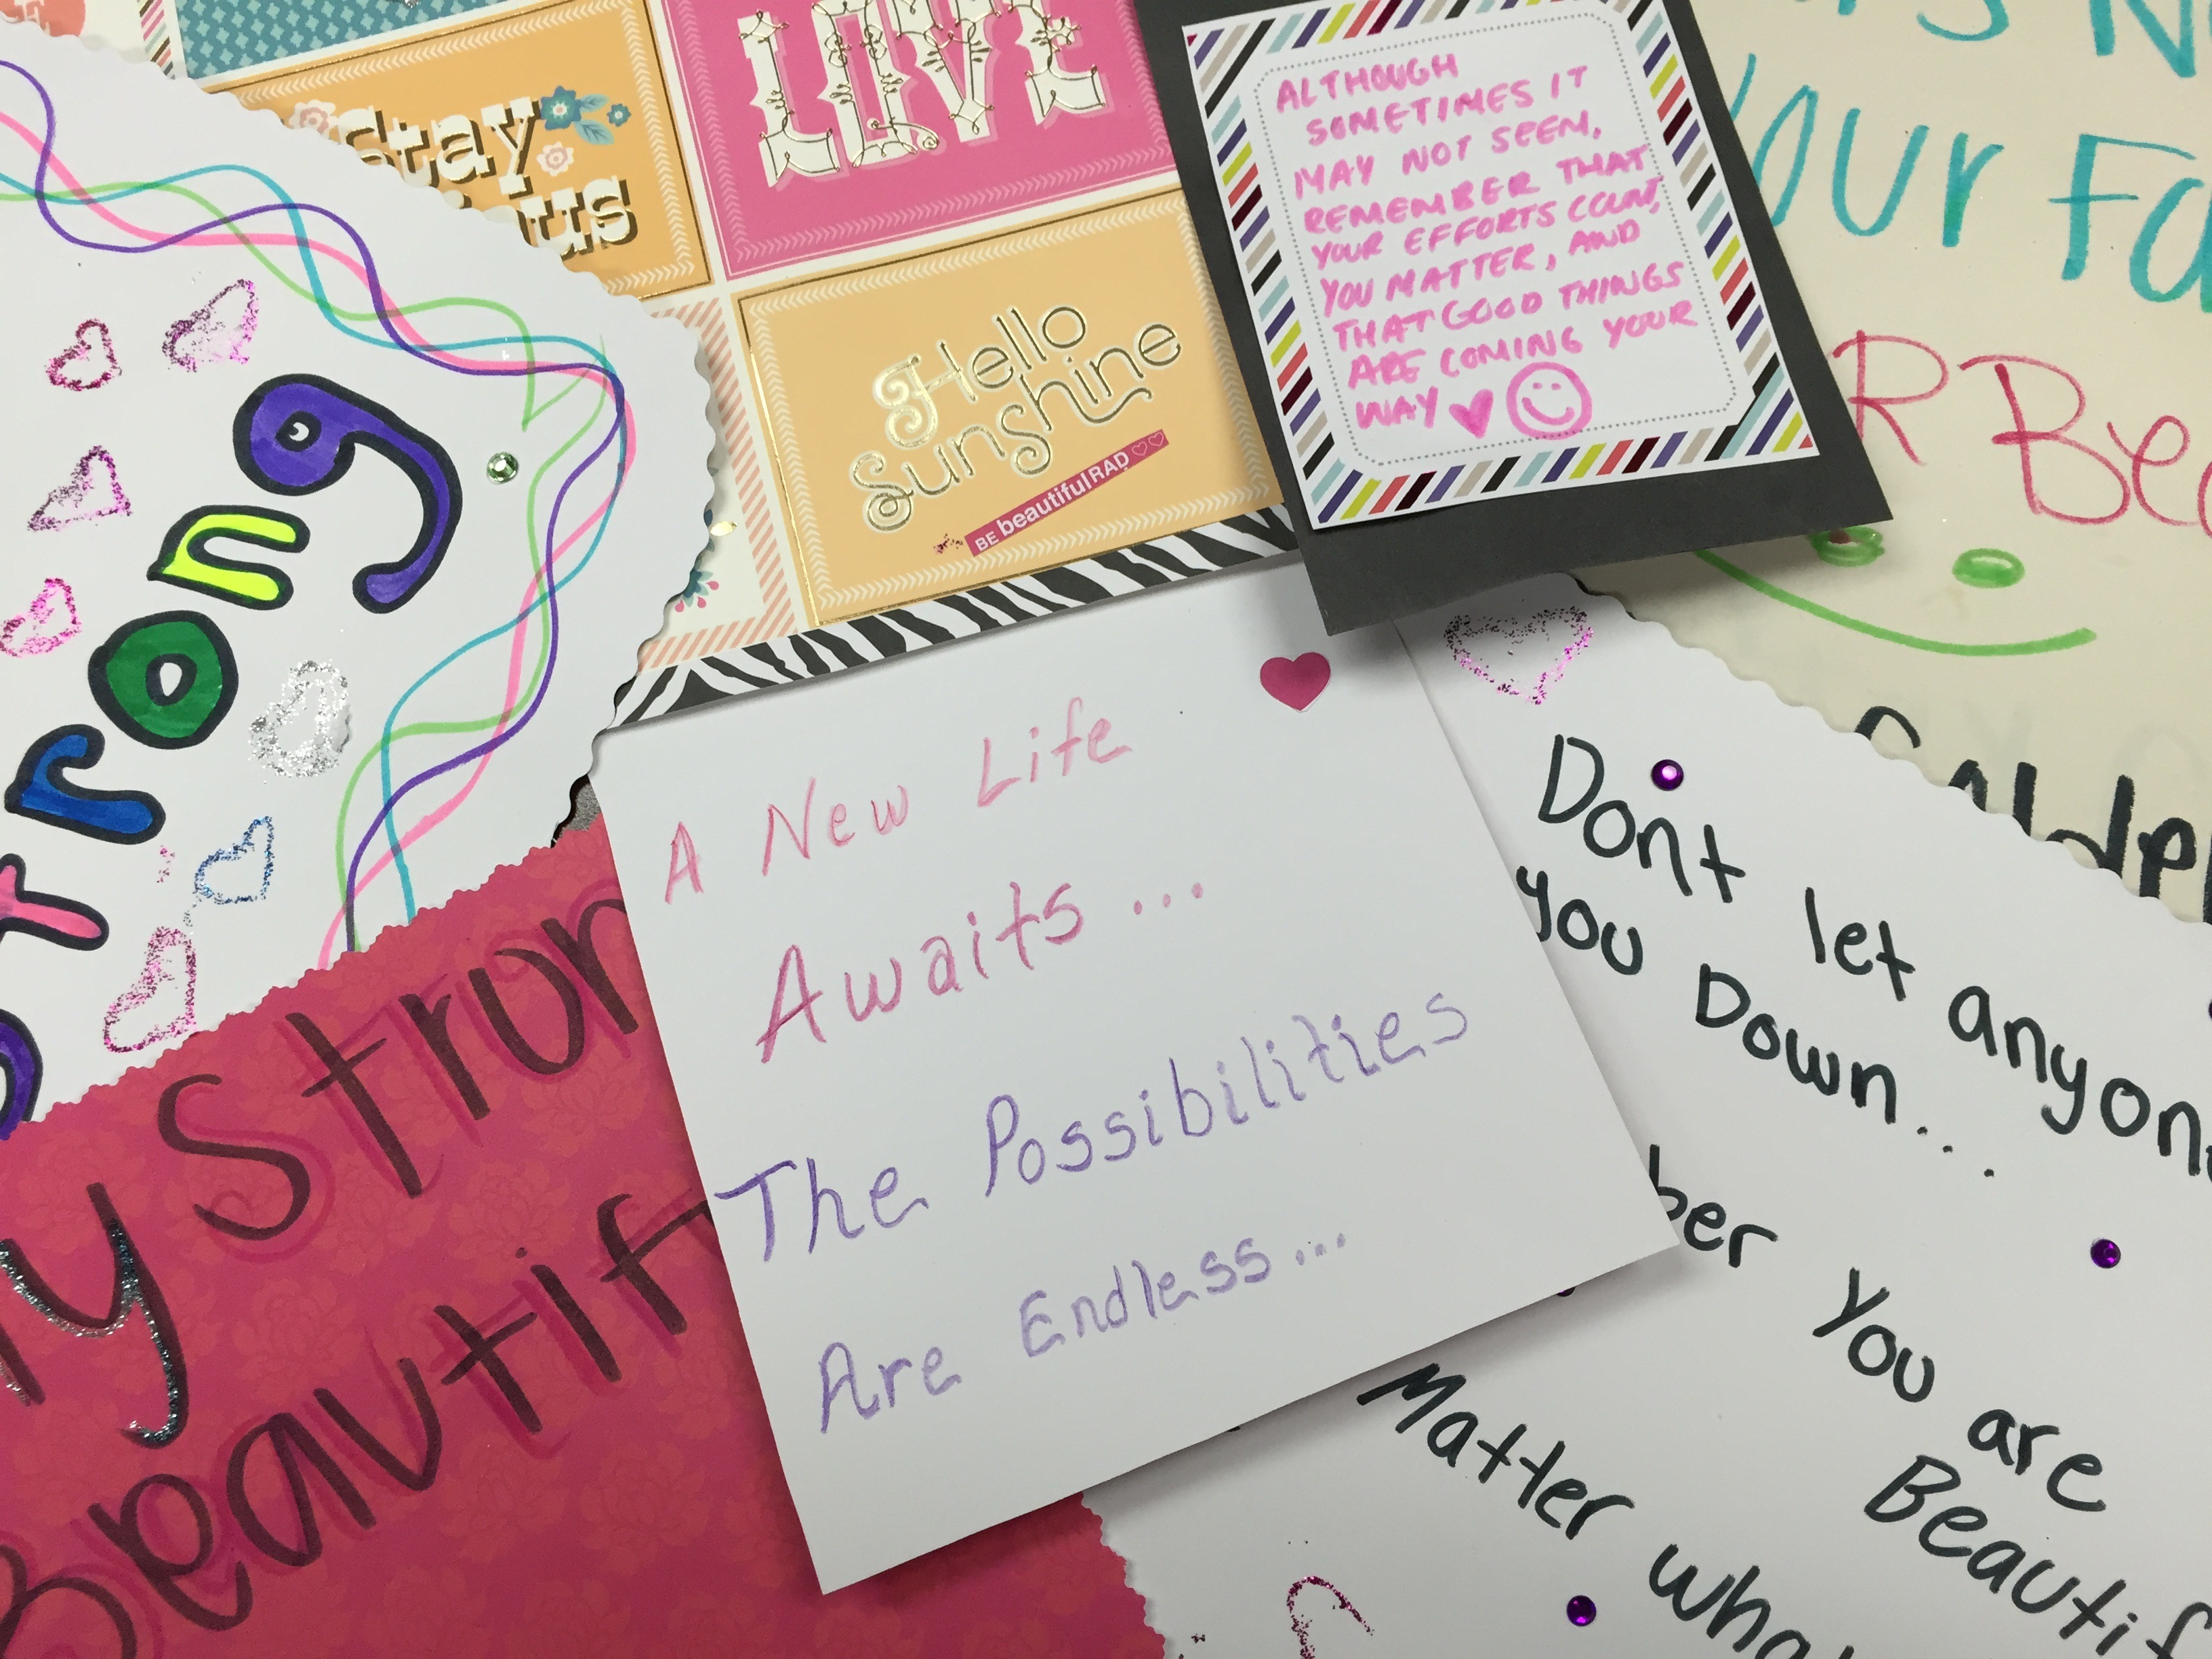 Stay
LOVE
Hello
Sunshine
BE beautiful RAD
ALTHOUGH
SOMETIMES IT
MAY NOT SEEM,
REMEMBER THAT
YOUR EFFORTS COUNT,
YOU MATTER, AND
THAT GOOD THINGS
ARE COMING YOUR
WAY
your
R
trong
A New Life
Awaits...
The Possibilities
Are Endless...
Dont let
you Down...
You are
Matter